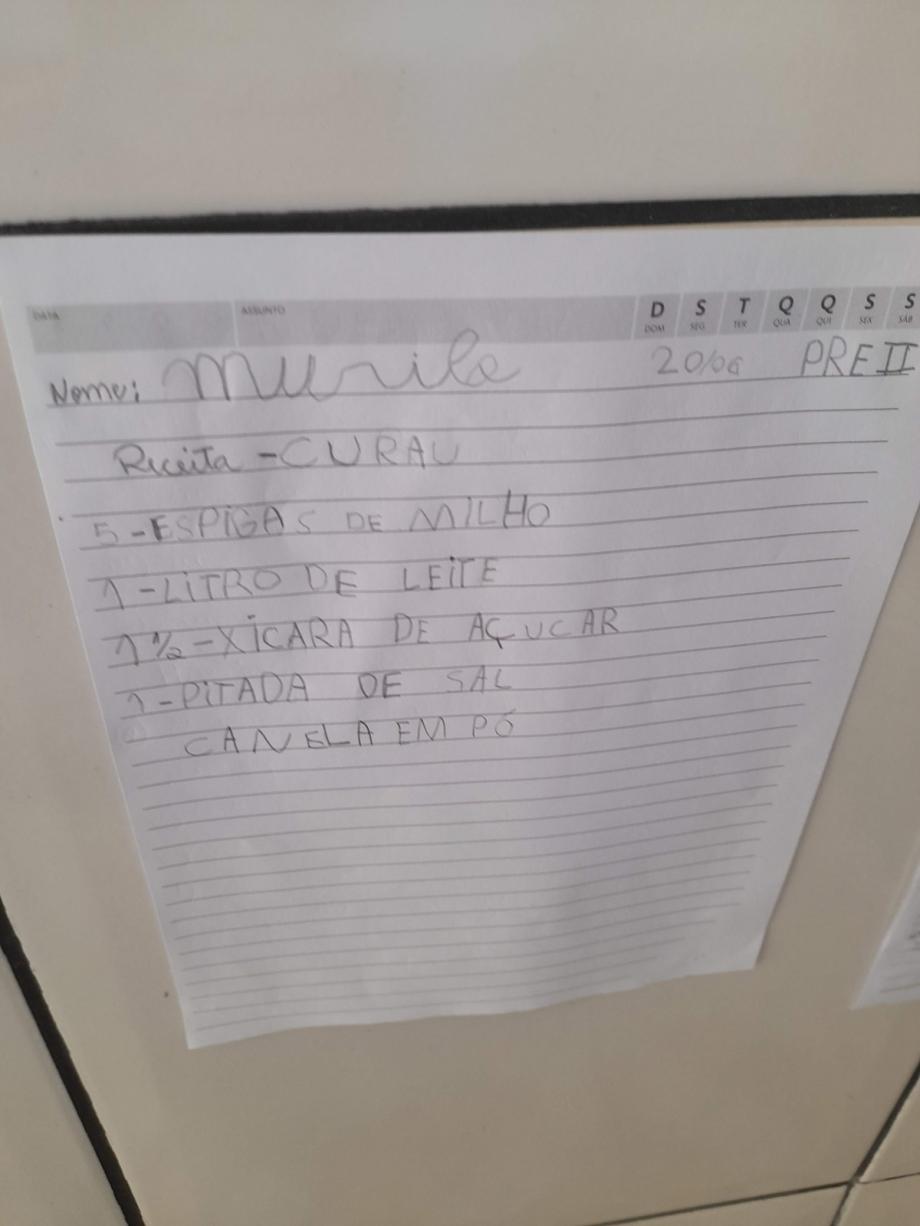 DATA ASSUNTO D S T Q Q S S
DOM SEG TER QUA QUI SEX SÁB
Nome: Murilo 20/06 PRE II
Receita - CURAU
5 - ESPIGAS DE MILHO
1 - LITRO DE LEITE
1 ½ - XICARA DE AÇUCAR
1 - PITADA DE SAL
CANELA EM PÓ